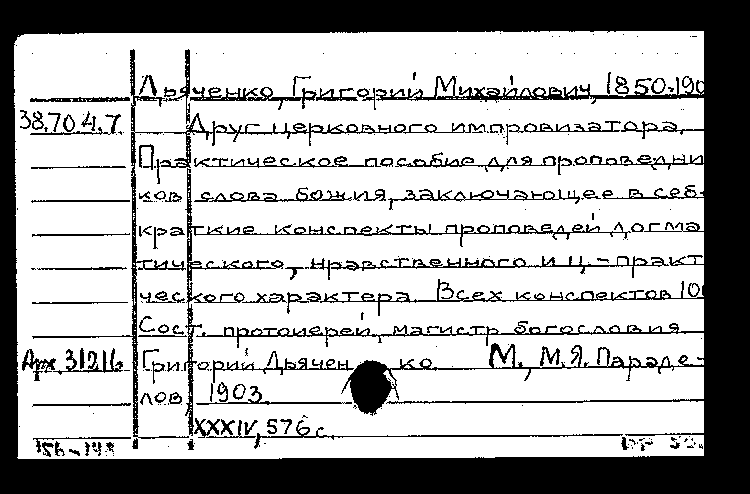 Дьяченко, Григорий Михайлович, 1850-190
38.70.4.7 Друг церковного импровизатора.
Практическое пособие для проповедни
ков слова божия, заключающее в себ
краткие конспекты проповедей догма
тического, нравственного и ц.-практ
ческого характера. Всех конспектов 100
Сост. протоиерей, магистр богословия
Арх. 31216 Григорий Дьяченко. М., М.Я. Параде-
лов, 1903.
XXXIV, 576 с.
156-148